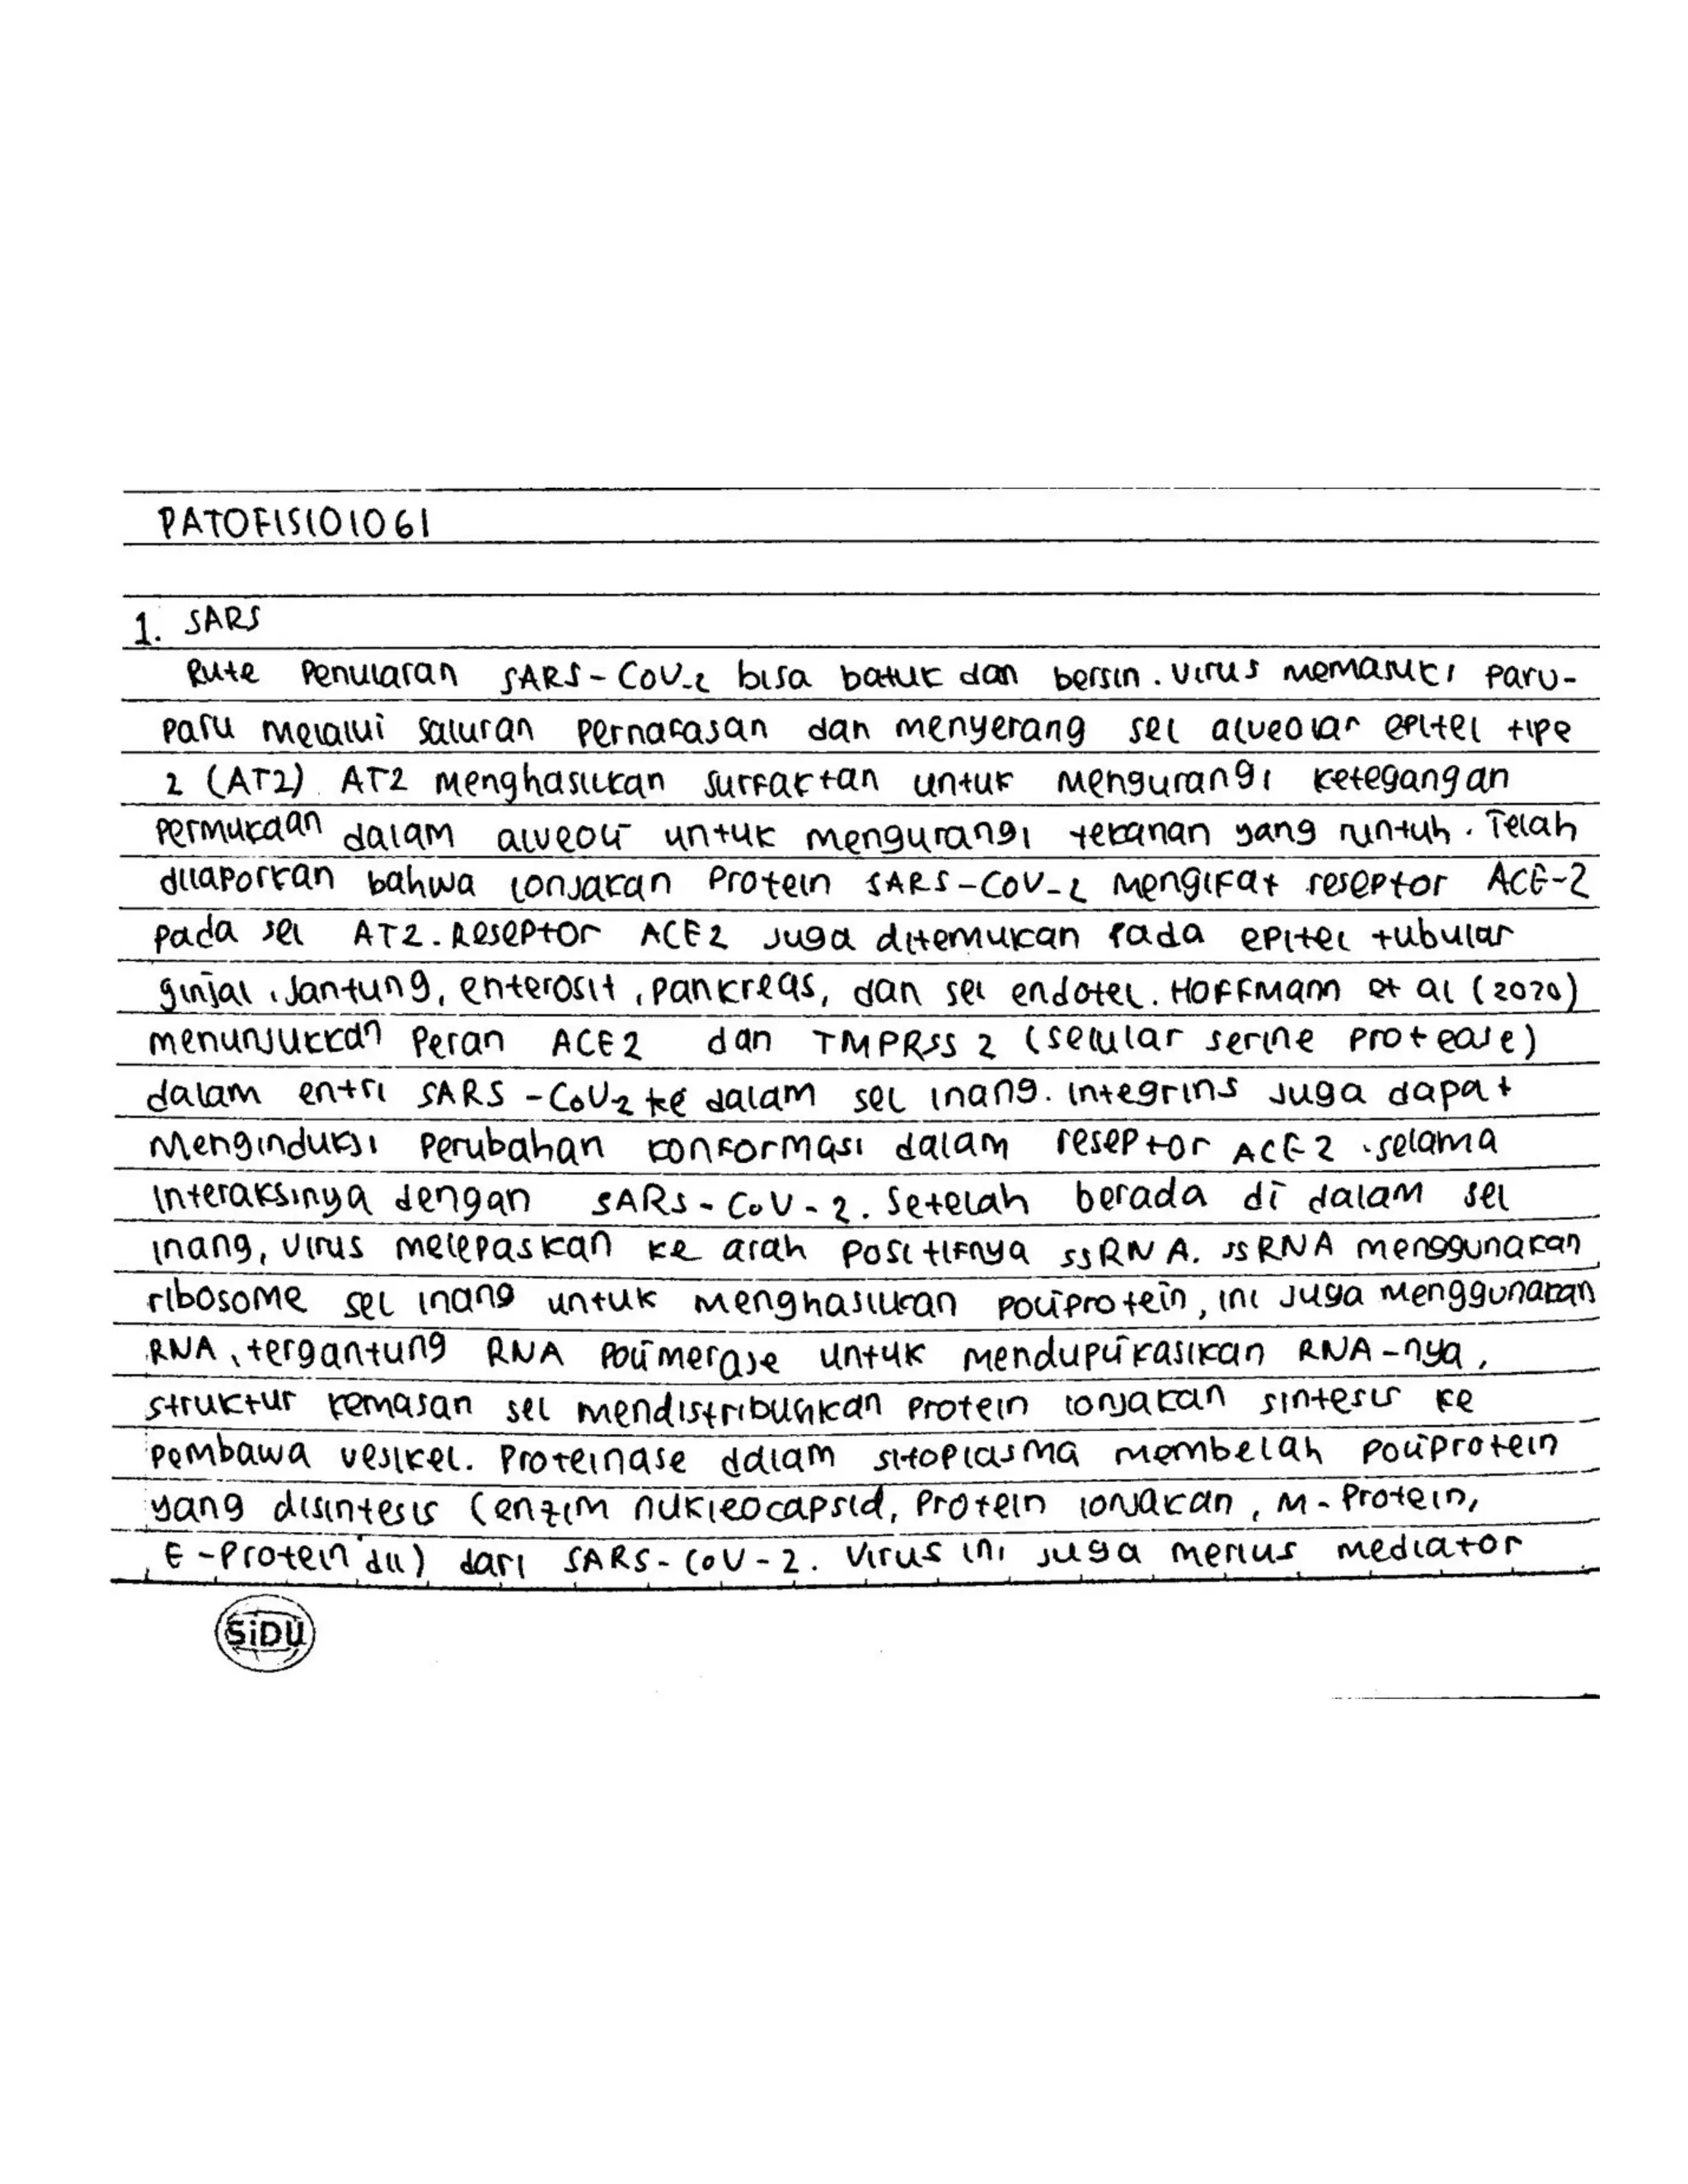 PATOFISIOLOGI
1. SARS
Rute Penularan SARS-CoV-2 bisa batuk dan bersin. Virus memasuki paru-
paru melalui saluran pernafasan dan menyerang sel alveolar epitel tipe
2 (AT2). AT2 menghasilkan surfaktan untuk mengurangi ketegangan
permukaan dalam alveoli untuk mengurangi tekanan yang runtuh. Telah
dilaporkan bahwa lonjakan Protein SARS-CoV-2 mengikat reseptor ACE-2
pada sel AT2. Reseptor ACE2 juga ditemukan pada epitel tubular
ginjal, jantung, enterosit, pankreas, dan sel endotel. Hoffmann et al (2020)
menunjukkan Peran ACE2 dan TMPRSS 2 (selular serine protease)
dalam entri SARS-CoV2 ke dalam sel inang. Integrins juga dapat
Menginduksi Perubahan konformasi dalam reseptor ACE2 .selama
Interaksinya dengan SARS-CoV-2. Setelah berada di dalam sel
inang, virus melepaskan ke arah Positifnya ssRNA. ssRNA menggunakan
ribosome sel inang untuk menghasilkan poliprotein, ini juga menggunakan
RNA, tergantung RNA Polimerase untuk menduplikasikan RNA-nya,
struktur kemasan sel mendistribusikan protein lonjakan sintesis ke
Pembawa vesikel. Proteinase dalam sitoplasma membelah poliprotein
yang disintesis (enzim nukleocapsid, Protein lonjakan, M-Protein,
E-Protein dll) dari SARS-CoV-2. Virus ini juga merilus mediator
SiDU